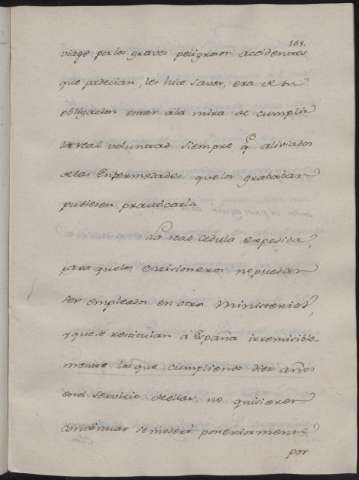 169.
viage por los graves peligrosos accidentes
que padecian, les hice saver, era de su
obligacion estar á la mira de cumplir
la real voluntad siempre q.e aliviados
de las enfermedades que los grababan
pudiesen practicarla
La real Cedula expedida,
para que los Misioneros no puedan
ser empleados en otro Ministerio,
y que se restituian á España irremisible
mente los que cumpliendo diez años
en el servicio de ellas, no quisieren
continuar se mostró poneria mente
por